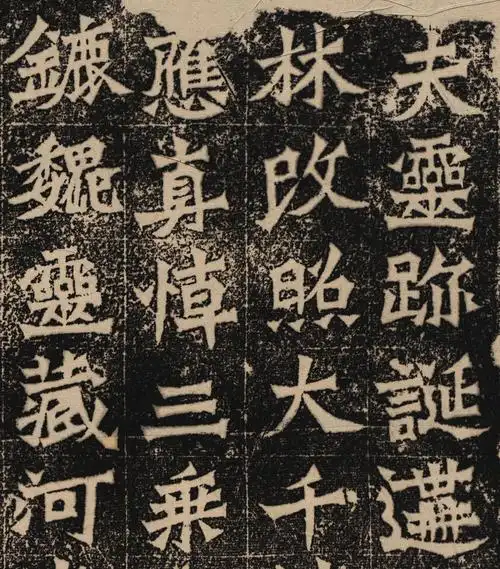 夫靈跡誕遘
林改照大千
應真悼三乘
鏕魏靈藏河